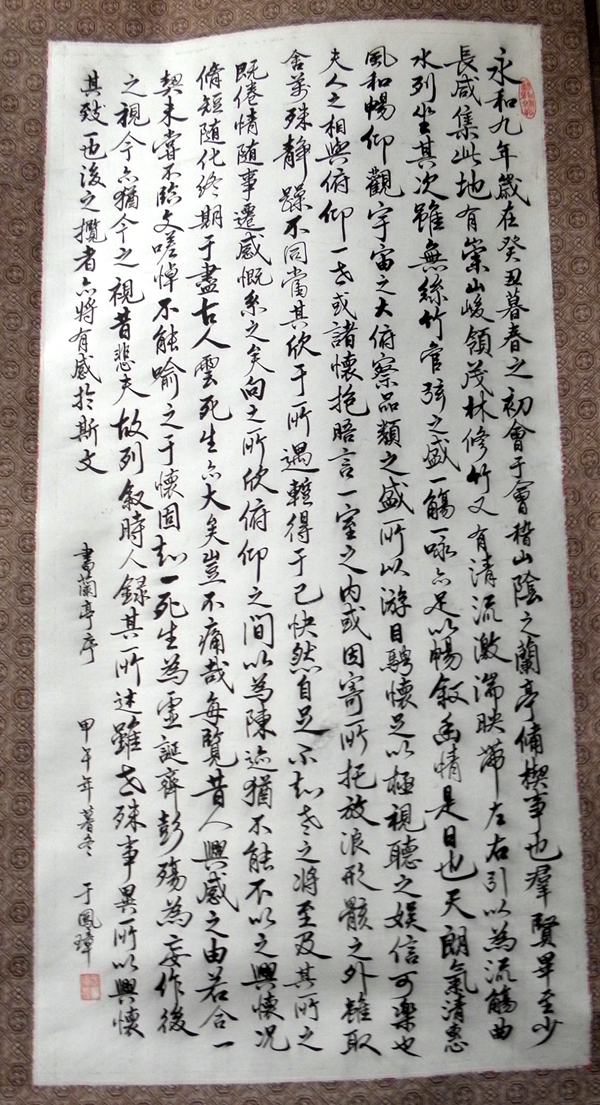 永和九年歲在癸丑暮春之初會于會稽山陰之蘭亭脩禊事也羣賢畢至少
長咸集此地有崇山峻領茂林修竹又有清流激湍映帶左右引以為流觴曲
水列坐其次雖無絲竹管弦之盛一觴一詠亦足以暢敘幽情是日也天朗氣清惠
風和暢仰觀宇宙之大俯察品類之盛所以游目騁懷足以極視聽之娱信可樂也
夫人之相與俯仰一世或諸懷抱晤言一室之内或因寄所托放浪形骸之外雖取
舍萬殊静躁不同當其欣于所遇暫得于己快然自足不知老之将至及其所之
既倦情随事遷感慨系之矣向之所欣俯仰之間以為陳迹猶不能不以之興懷况
脩短随化終期于盡古人雲死生亦大矣豈不痛哉每覽昔人興感之由若合一
契未嘗不臨文嗟悼不能喻之于懷固知一死生為虛誕齊彭殤為妄作後
之視今亦猶今之視昔悲夫故列敘時人録其所述雖世殊事異所以興懷
其致一也後之攬者亦將有感於斯文
書蘭亭序 甲午年暮冬 于鳳璋